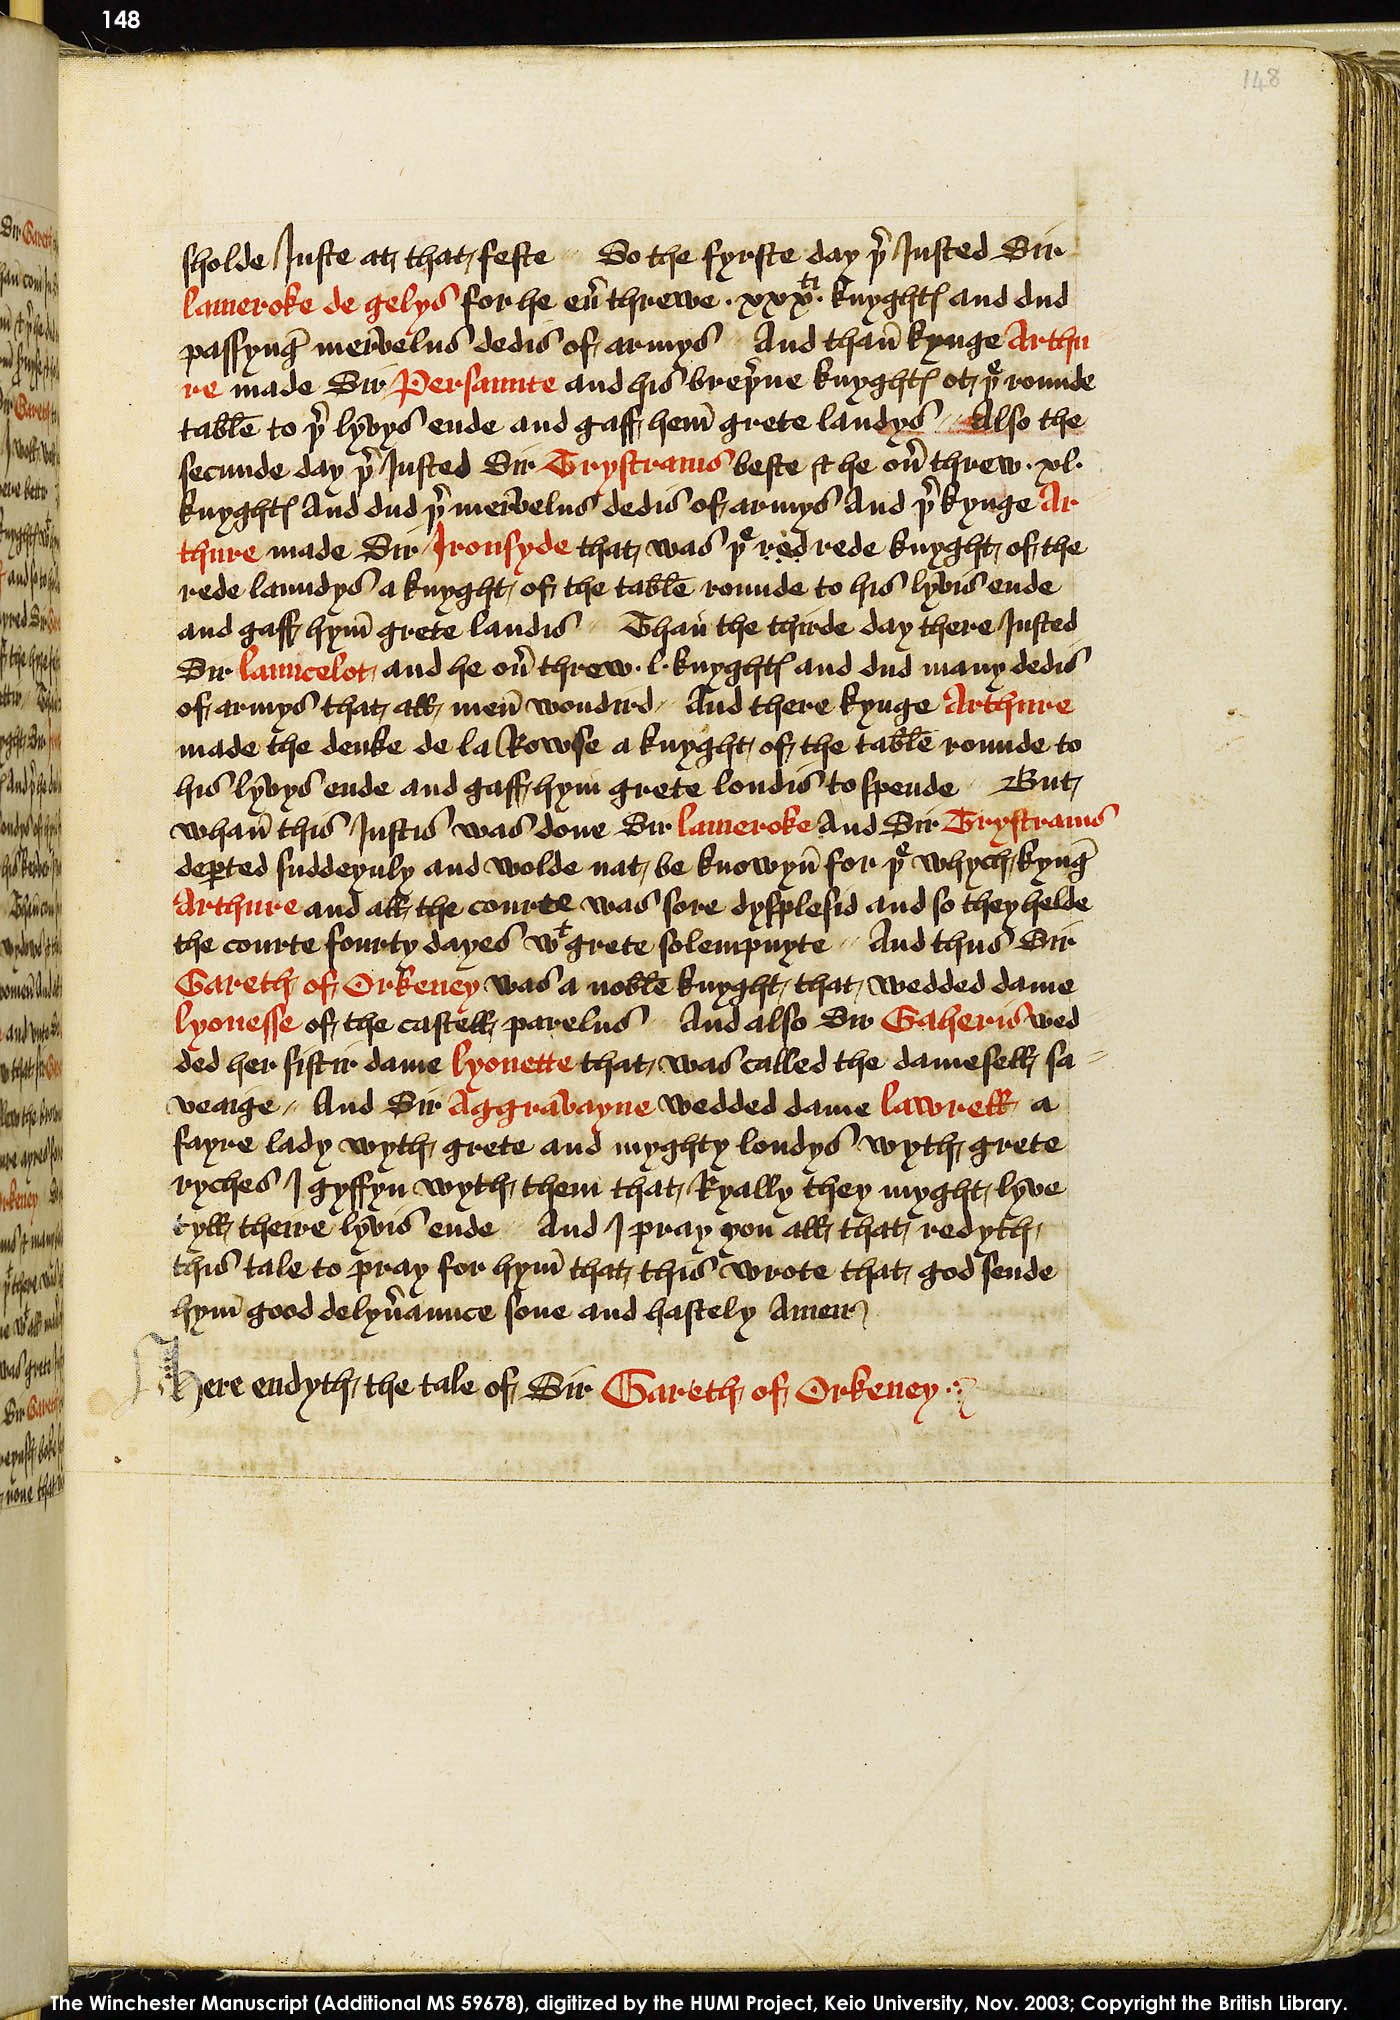 148
148
sholde Juste at that feste So the fyrste day þͬ Justed Sir
lameroke de gelys for he ouͬ threwe · xxxti · knyghtꝭ and dud
passyng merveluꝰ dedis of armys And than kynge Arthu
re made Sir Persaunte and his breþͬne knyghtꝭ of þe rounde
table to þͬ lyvys ende and gaff hem grete landys Also the
secunde day þͬ Justed Sir Trystrams beste & he ouͬ threw · xl ·
knyghtꝭ And dud þͬ merveluꝰ dedis of armys And þͬ kynge Ar
thure made Sir Ironsyde that was þe red rede knyght of the
rede laundys a knyght of the table rounde to his lyvis ende
and gaff hym grete landis Than the thirde day there Justed
Sir launcelot and he ouͬ threw · l · knyghtꝭ and dud many dedis
of armys that all men wondird And there kynge Arthure
made the deuke de la Rowse a knyght of the table rounde to
his lyvys ende and gaff hym grete londis to spende But
whan this Justis was done Sir lameroke And Sir Trystrams
deꝑted suddeynly and wolde nat be knowyn for þe whych kyng
Arthure and all the courte was sore dysplesid and so they helde
the courte fourty dayes wt grete solempnyte And thus Sir
Gareth of Orkeney was a noble knyght that wedded dame
lyonesse of the castell parelus And also Sir Gaheris wed
ded her sistir dame lyonette that was called the damesell sa =
veaige And Sir Aggravayne wedded dame lawrell a
fayre lady wyth grete and myghty londys wyth grete
ryches I gyffyn wyth them that Ryally they myght lyve
tyll theire lyvis ende And I pray you all that redyth
this tale to pray for hym that this wrote that god sende
hym good delyuͬaunce sone and hastely Amen
here endyth the tale of Sir Gareth of Orkeney
The Winchester Manuscript (Additional MS 59678), digitized by the HUMI Project, Keio University, Nov. 2003; Copyright the British Library.